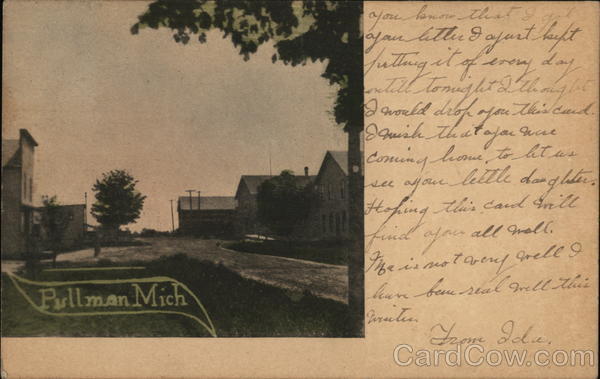 you know that I got
your letter I ajust kept
putting it of every day
untill tonight I thought
I would drop you this card.
I wish that you were
coming home, to let us
see your little daughter.
Hoping this card will
find you all well.
Ma is not very well I
have been real well this
winter.
From Ida.
Pullman Mich
CardCow.com